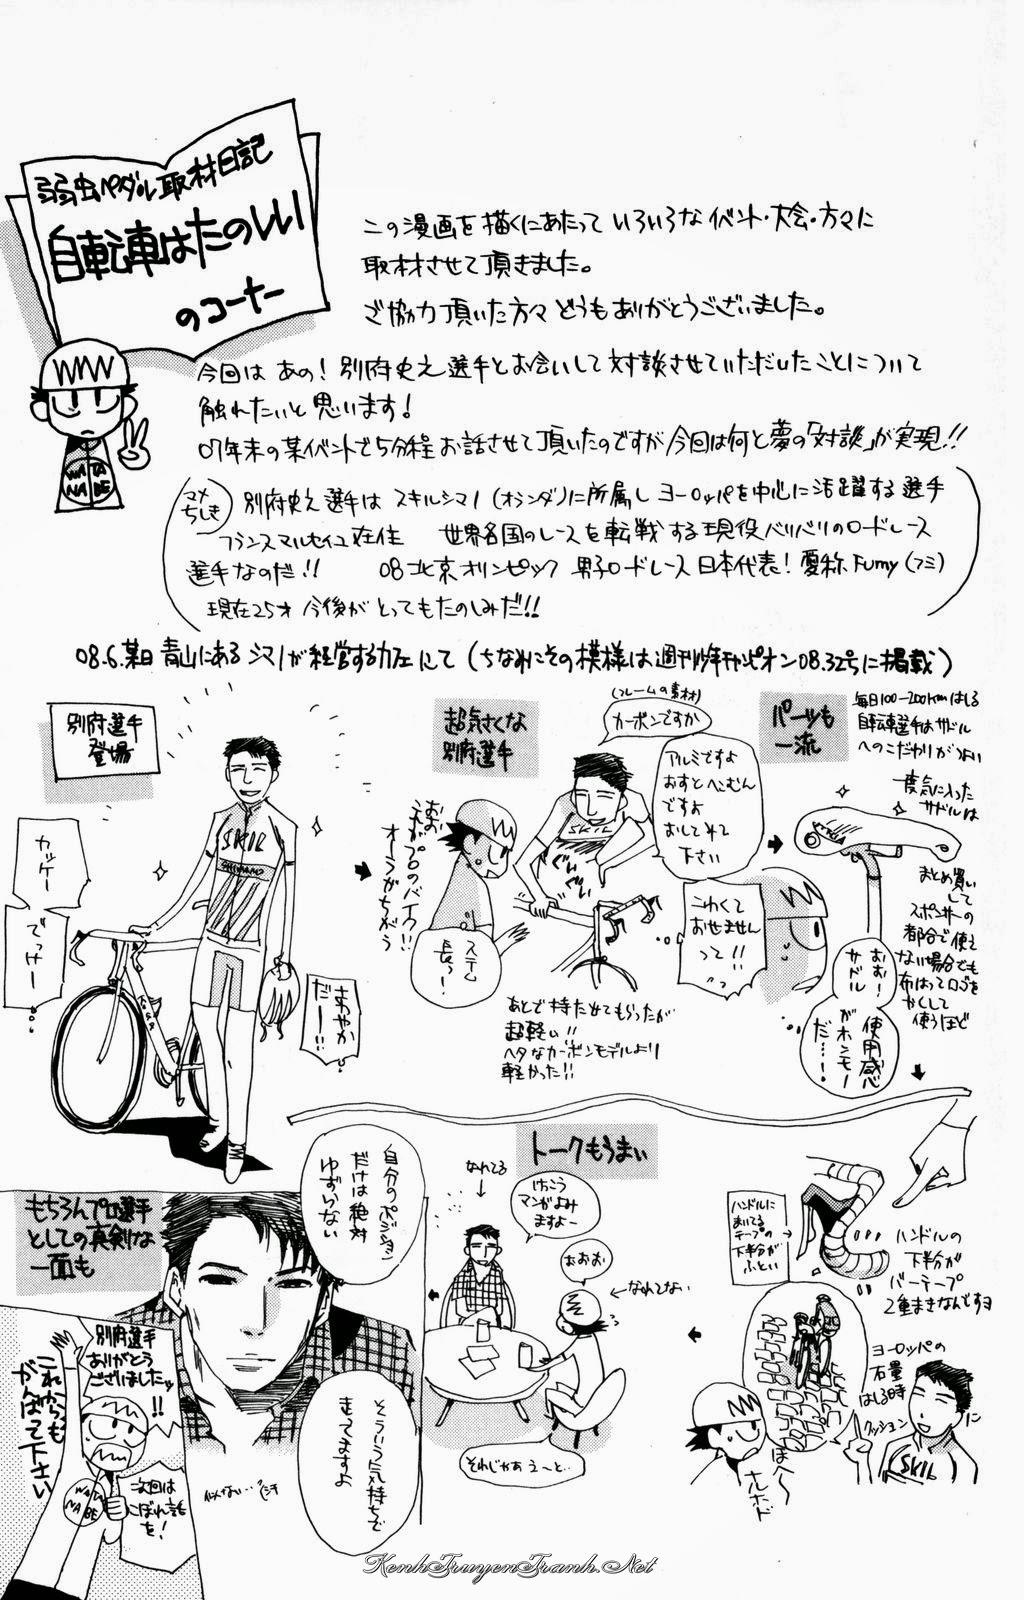 弱虫ペダル取材日記
自転車はたのしい
のコーナー
この漫画を描くにあたって いろいろなイベント・大会・方々に
取材させて頂きました。
ご協力頂いた方々 どうもありがとうございました。
今回は あの! 別府史之選手とお会いして 対談させていただいたことについて
触れたいと思います!
07年末の某イベントで5分程 お話させて頂いたのですが 今回は何と夢の「対談」が実現!!
マメちしき
別府史之選手は スキルシマノ(オランダ)に所属し ヨーロッパを中心に活躍する選手
フランスマルセイユ在住 世界各国のレースを転戦する現役バリバリのロードレース
選手なのだ!! 08北京オリンピック 男子ロードレース日本代表! 愛称Fumy(フミ)
現在25才 今後がとってもたのしみだ!!
08.6.某日 青山にある シマノが経営するカフェにて(ちなみにその模様は週刊少年チャンピオン08.32号に掲載)
別府選手
登場
カッケー
でっけー
SKIL
SHIMANO
Koga
さわやか
だー!!
超気さくな
別府選手
(フレームの素材)
カーボンですか
アルミですよ
おすとへこむん
ですよ
おしてみて
下さい
SKIL
おお
これがプロのバイク!!
オーラがちがう
ステム
長っ!
こわくて
おせません
って!!
あとで持たせてもらったが
超軽い!!
ヘタなカーボンモデルより
軽かった!!
パーツも
一流
毎日100-200kmはしる
自転車選手はサドル
へのこだわりがつよい
一度気に入った
サドルは
まとめ買い
して
スポンサーの
都合で使え
ない場合でも
布はってロゴを
かくして
使うほど
おお!
サドル
がホンモー
使用感
だ…!
ハンドルに
まいてる
テープの
下半分が
ふとい
ハンドルの
下半分が
バーテープ
2重まきなんですヨ
ヨーロッパの
石畳
はしる時
クッション
に
SKIL
ほへ〜
ナルホド
トークもうまい
なれてる
けっこう
マンガよみ
ますよー
おおお
なれてない
それじゃあ えーと…
もちろんプロ選手
としての真剣な
一面も
自分のポジション
だけは絶対
ゆずらない
そういう気持ちで
走ってますよ
似てない…
別府選手
ありがとう
ございましたッ
!!
これからも
がんばって下さい
WATA
NABE
次回は
こぼれ話
を!
KenhTruyenTranh.Net